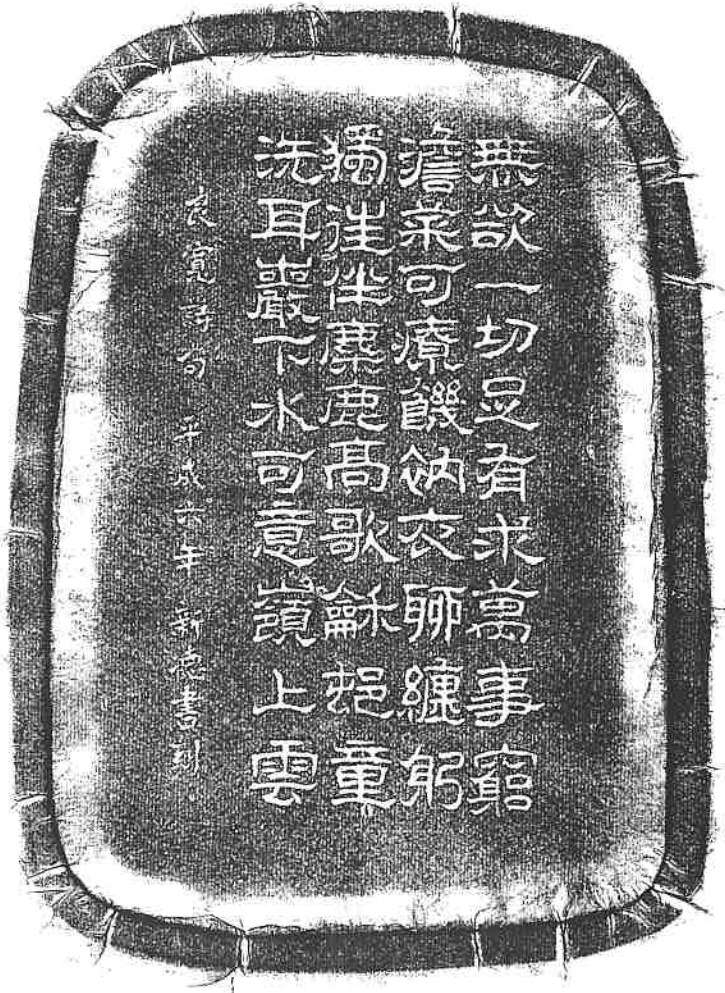 無欲一切足有求萬事窮
澹菜可療饑衲衣聊纏躬
獨往伴麋鹿高歌龢邨童
洗耳巖下水可意嶺上雲
良寛詩句 平成六年 新德書刻